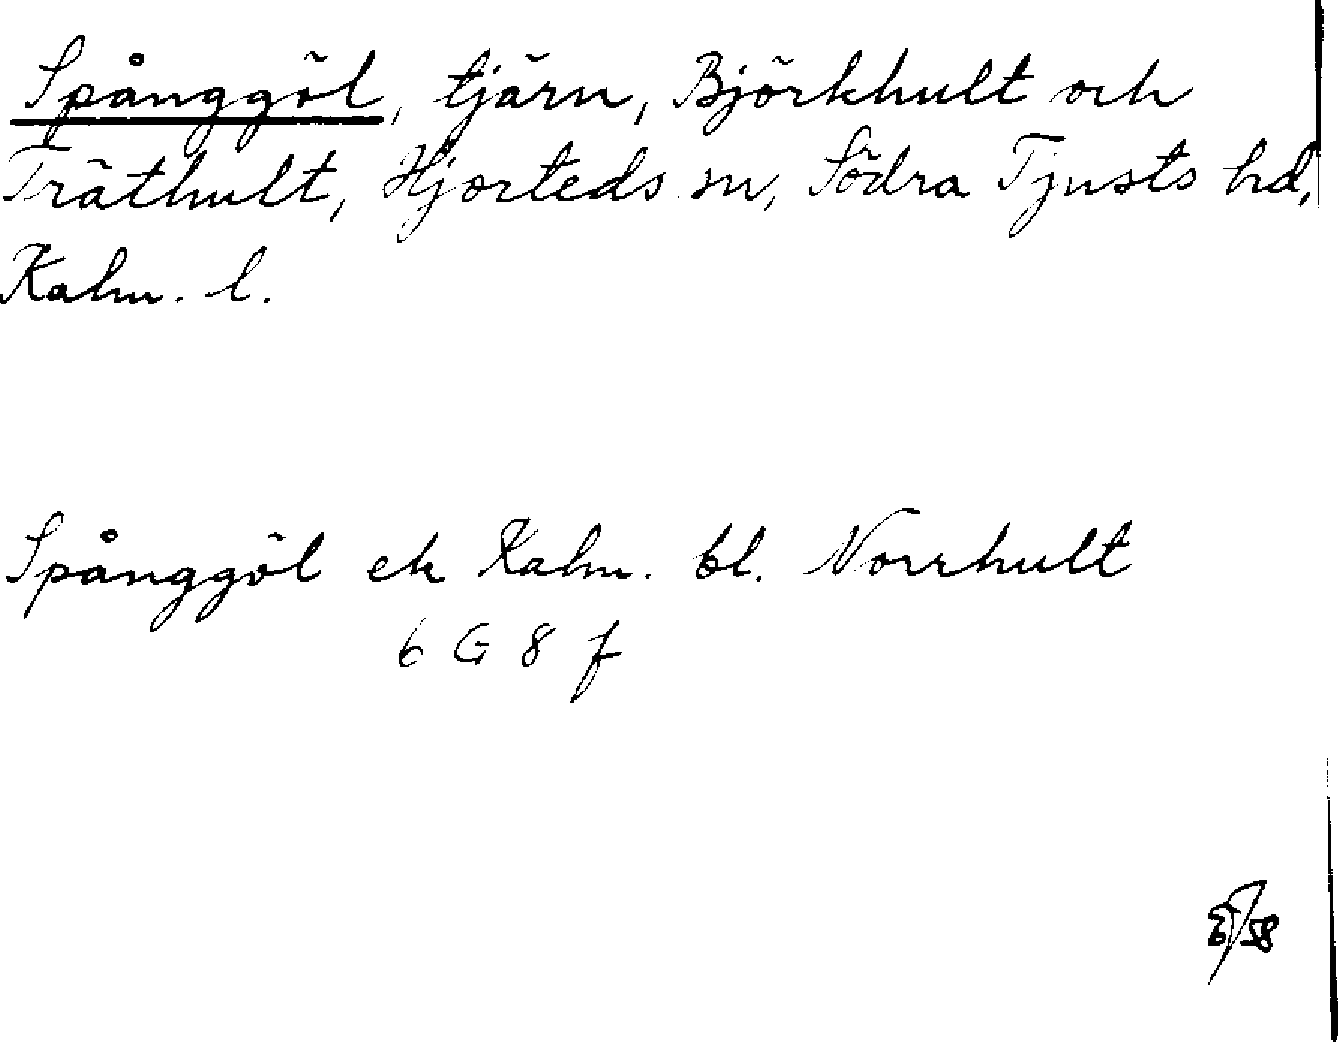 Spånggöl, tjärn, Björkhult och
Träthult, Hjorteds sn, Södra Tjusts hd,
Kalm. l.
Spånggöl ek Kalm. bl. Norrhult
6 G 8 f